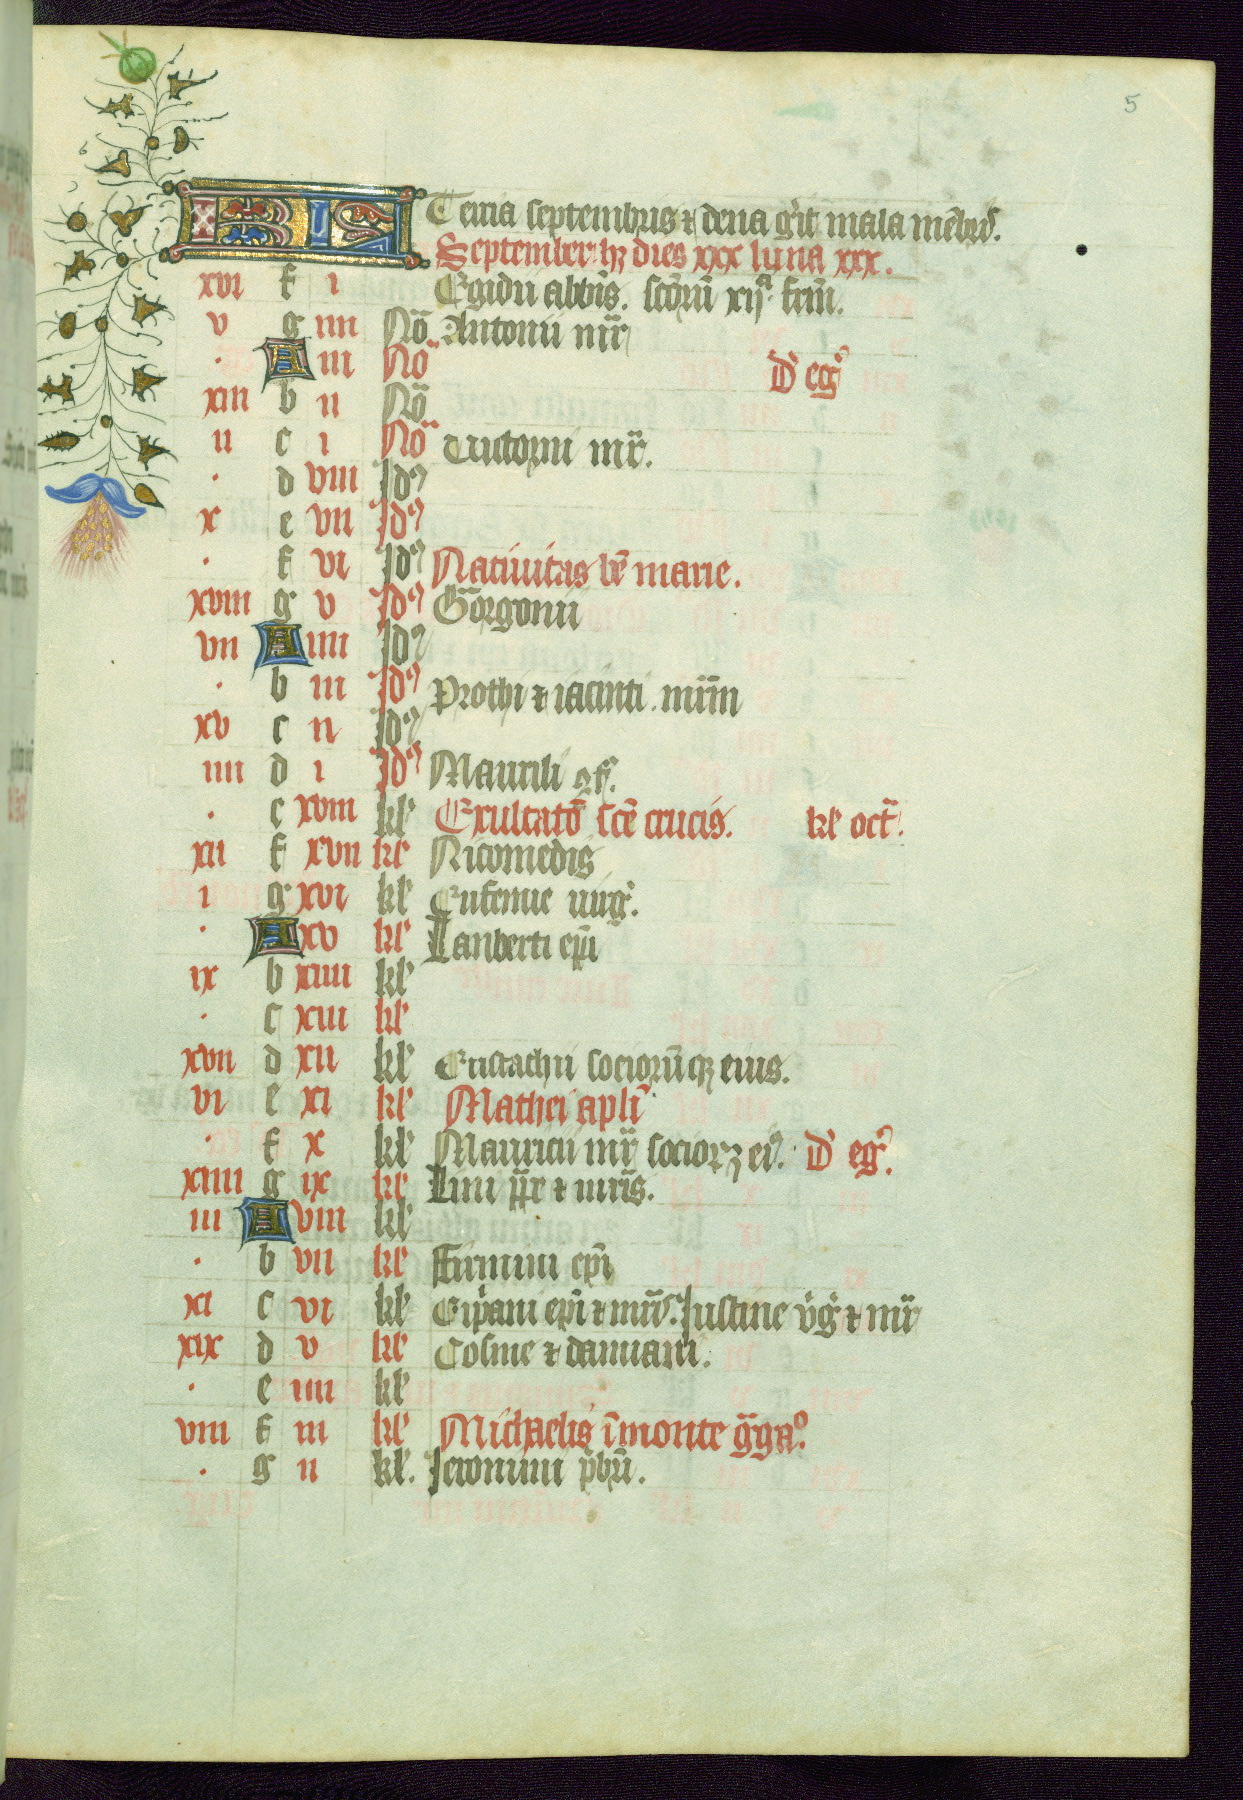 5
KL Tercia septembris ⁊ dena gͥit mala mēbris.
September hꝫ dies xxx luna xxx.
xvi f i Egidii abbīs. scōrū xijᵃ frm̄.
v g iiii No Antonii mr̄
. A iii No D' eg'
xiii b ii No
ii c i No Victorini mr̄.
. d viii Id9
x e vii Id9
. f vi Id9 Natiuitas bē marie.
xviii g v Id9 Gorgonii
vii A iiii Id9
. b iii Id9 Prothi ⁊ iacinti. mr̄m
xv c ii Id9
iiii d i Id9 Maurili ꝯf.
. e xviii kl' Exaltatō scē crucis. kl' oct'.
xii f xvii kl' Nicomedis
i g xvi kl' Eufemie uirg'.
. A xv kl' Lanberti ep̄i
ix b xiiii kl'
. c xiii kl'
xvii d xii kl' Eustachii sociorūqꝫ eius.
vi e xi kl' Mathei apl'i
. f x kl' Mauricii mr̄ socioꝝ ei'. D' eg'.
xiiii g ix kl' Lini p̄p̄ ⁊ mr̄is.
iii A viii kl'
. b vii kl' Firmini ep̄i
xi c vi kl' Cip̄ani ep̄i ⁊ mr̄is. Iustine v̄g' ⁊ mr̄
xix d v kl' Cosme ⁊ damiani.
. e iiii kl'
viii f iii kl' Michaelis ī monte g̅gaᵒ.
. g ii kl'. Ieronimi p̄br̄i.